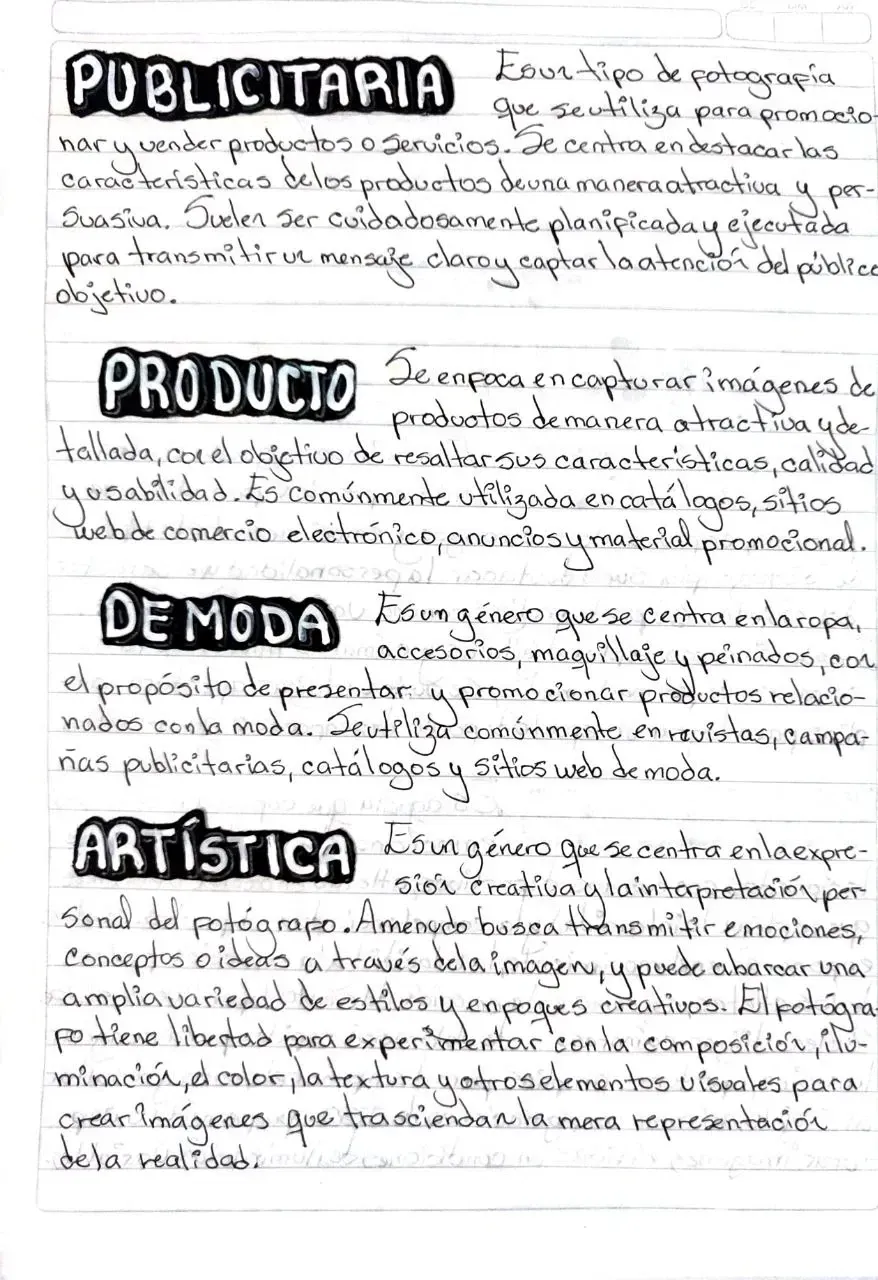 PUBLICITARIA Es un tipo de fotografía
que se utiliza para promocio-
nar y vender productos o servicios. Se centra en destacar las
características de los productos de una manera atractiva y per-
suasiva. Suelen ser cuidadosamente planificada y ejecutada
para transmitir un mensaje claro y captar la atención del público
objetivo.
PRODUCTO Se enfoca en capturar imágenes de
productos de manera atractiva y de-
tallada, con el objetivo de resaltar sus características, calidad
y usabilidad. Es comúnmente utilizada en catálogos, sitios
web de comercio electrónico, anuncios y material promocional.
DE MODA Es un género que se centra en la ropa,
accesorios, maquillaje y peinados, con
el propósito de presentar y promocionar productos relacio-
nados con la moda. Se utiliza comúnmente en revistas, campa-
ñas publicitarias, catálogos y sitios web de moda.
ARTÍSTICA Es un género que se centra en la expre-
sión creativa y la interpretación per-
sonal del fotógrafo. A menudo busca transmitir emociones,
conceptos o ideas a través de la imagen, y puede abarcar una
amplia variedad de estilos y enfoques creativos. El fotógra-
fo tiene libertad para experimentar con la composición, ilu-
minación, el color, la textura y otros elementos visuales para
crear imágenes que trasciendan la mera representación
de la realidad.